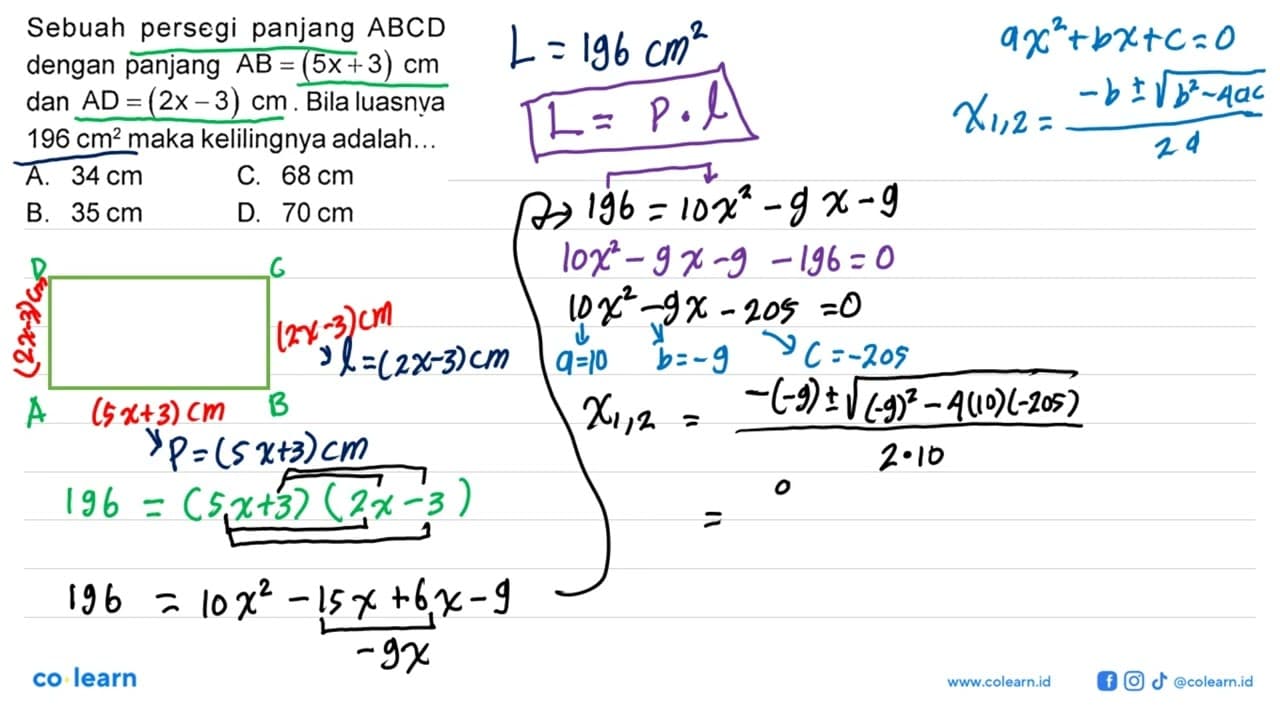 Sebuah persegi panjang ABCD
dengan panjang AB = (5x + 3) cm
dan AD = (2x – 3) cm. Bila luasnya
196 cm² maka kelilingnya adalah...
A. 34 cm C. 68 cm
B. 35 cm D. 70 cm
D C
(2x-3)cm
(2x-3)cm
l=(2x-3)cm
A (5x+3) cm B
P=(5x+3)cm
196 = (5x+3)(2x-3)
196 = 10x² - 15x + 6x - 9
-9x
L = 196 cm²
L = P . l
196 = 10x² - 9x - 9
10x² - 9x - 9 - 196 = 0
10x² - 9x - 205 = 0
a=10 b=-9 C=-205
x1,2 = -(-9) ± √(-9)² - 4(10)(-205)
2•10
=
ax² + bx + c = 0
x1,2 = -b ± √b² - 4ac
2a
co learn
www.colearn.id @colearn.id